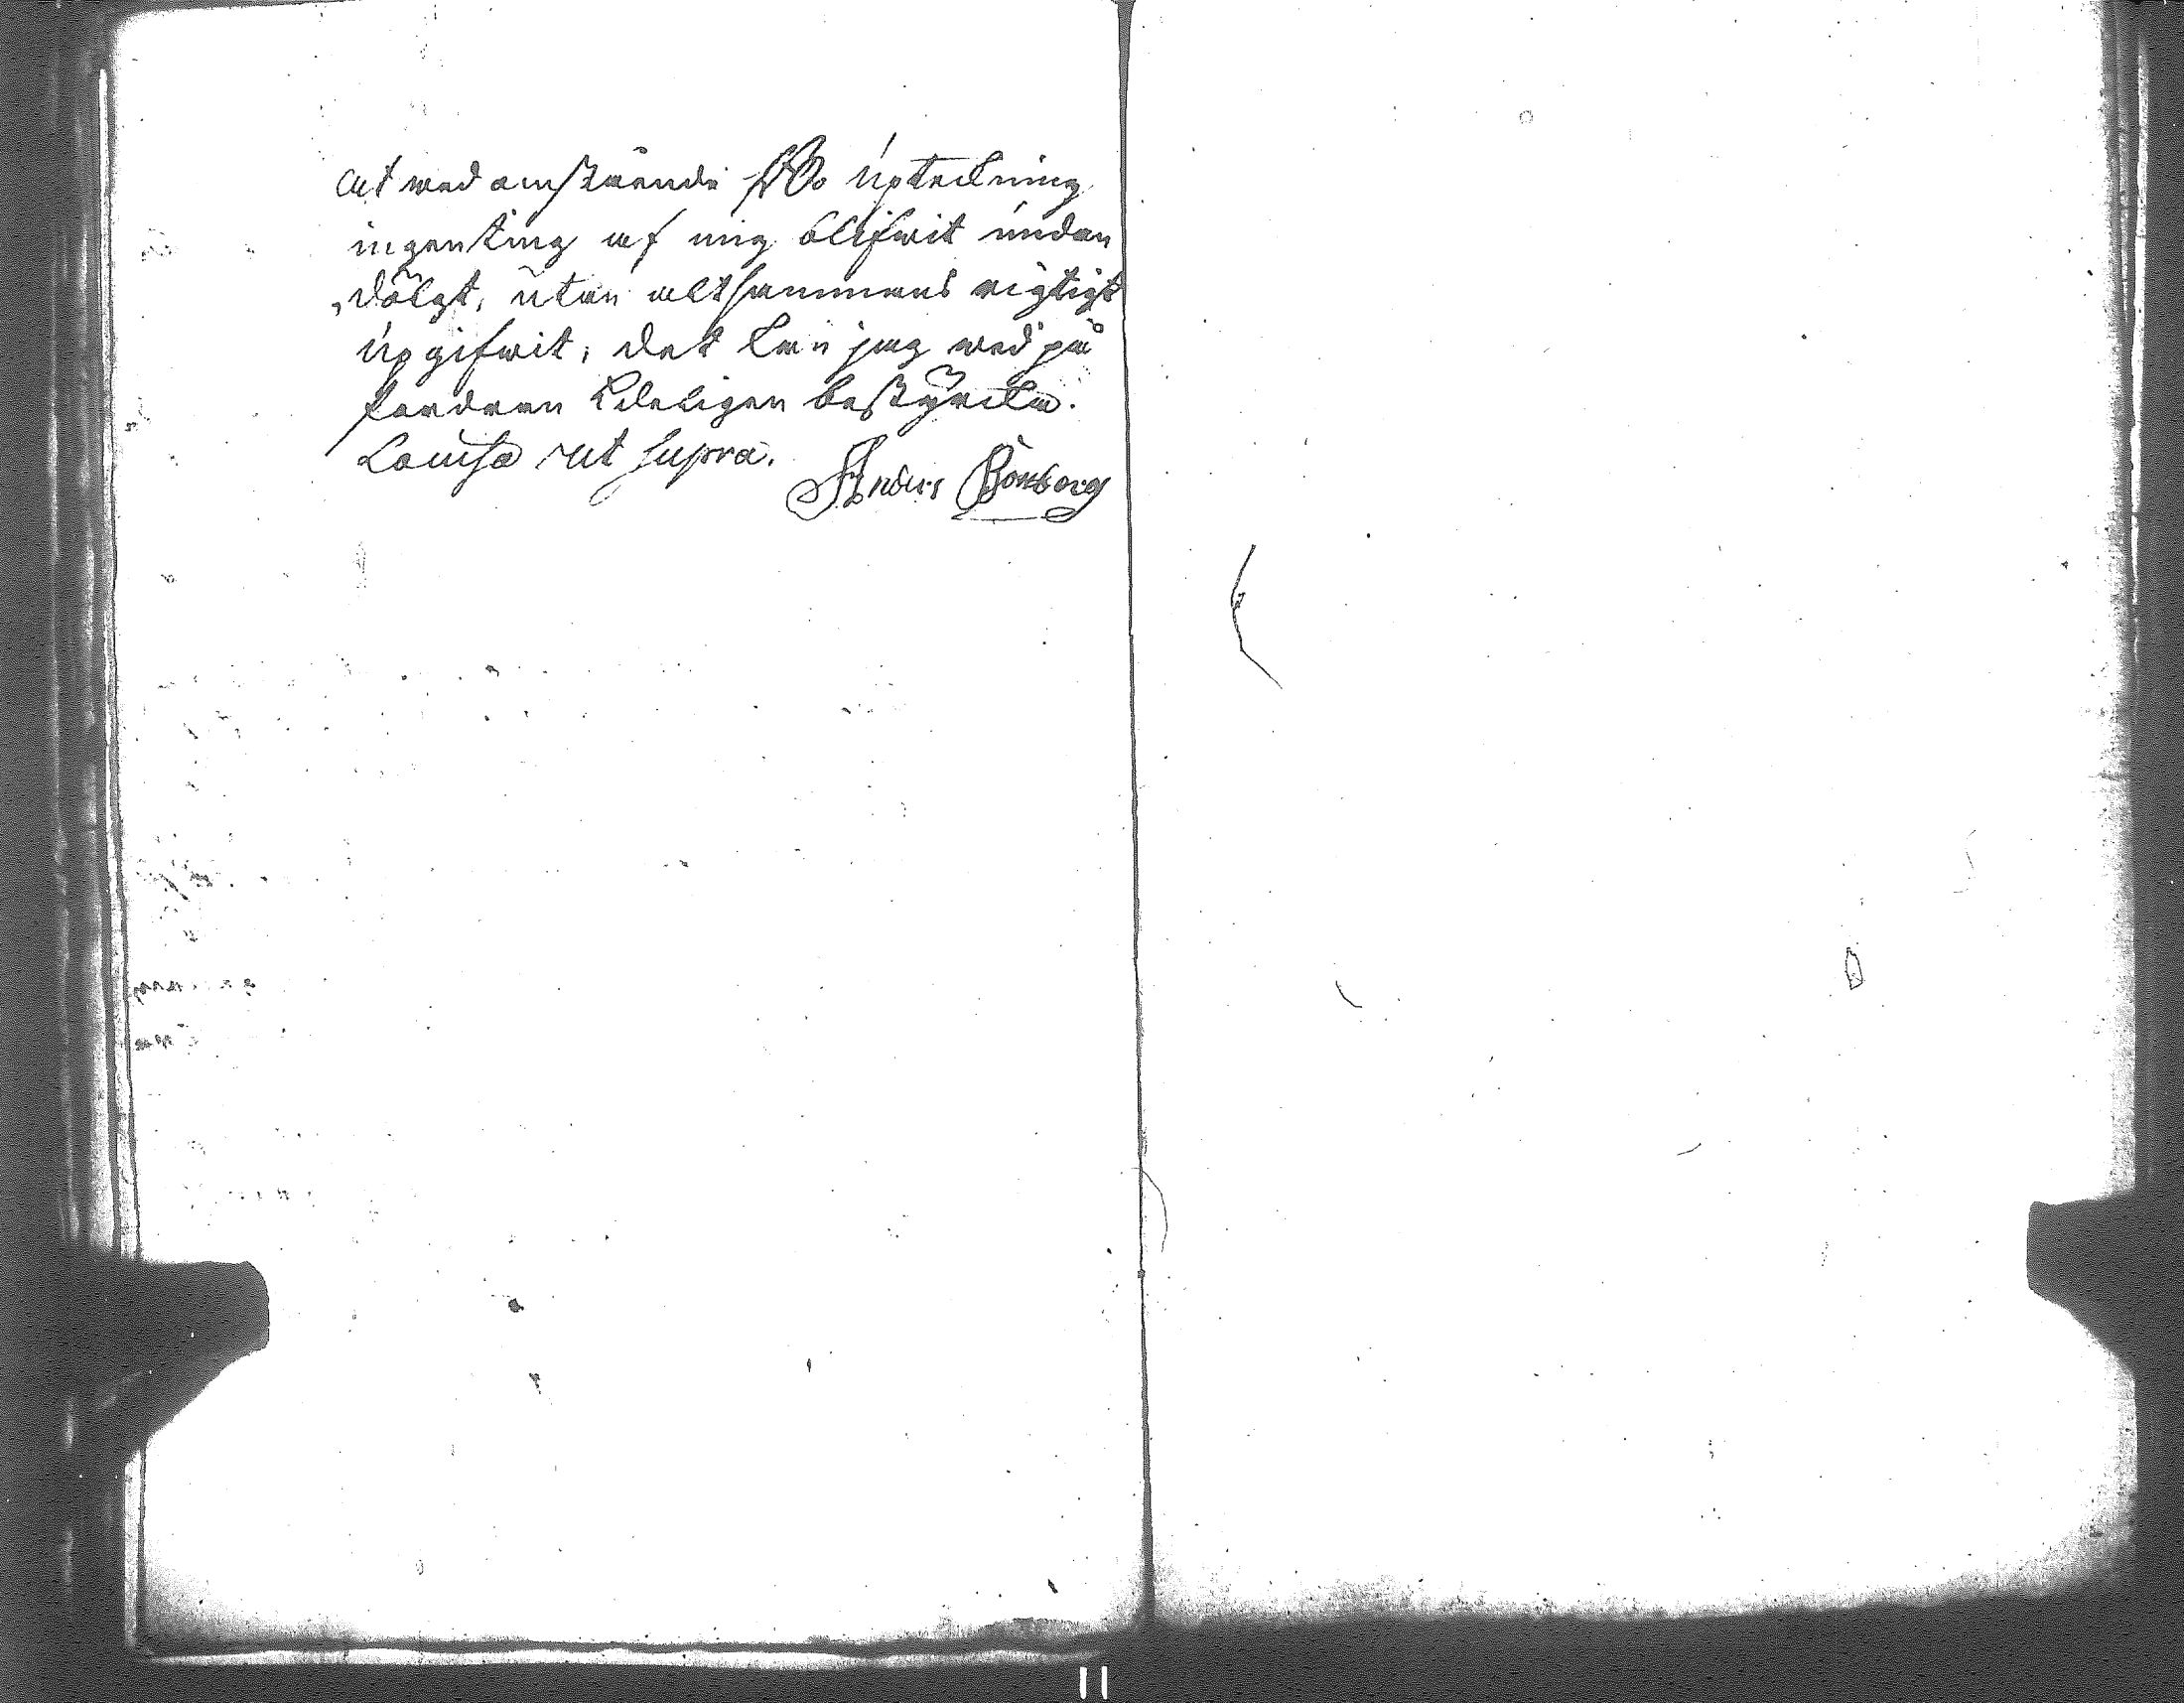 At wed omstående Bo Upteckning
ingenting af mig blifwit undan
dölgt, utan altsammans rigtigt
upgifwit, det kan jag wed på
fordran Edeligen bestyrcka.
Lovisa ut supra. Anders Bomborg